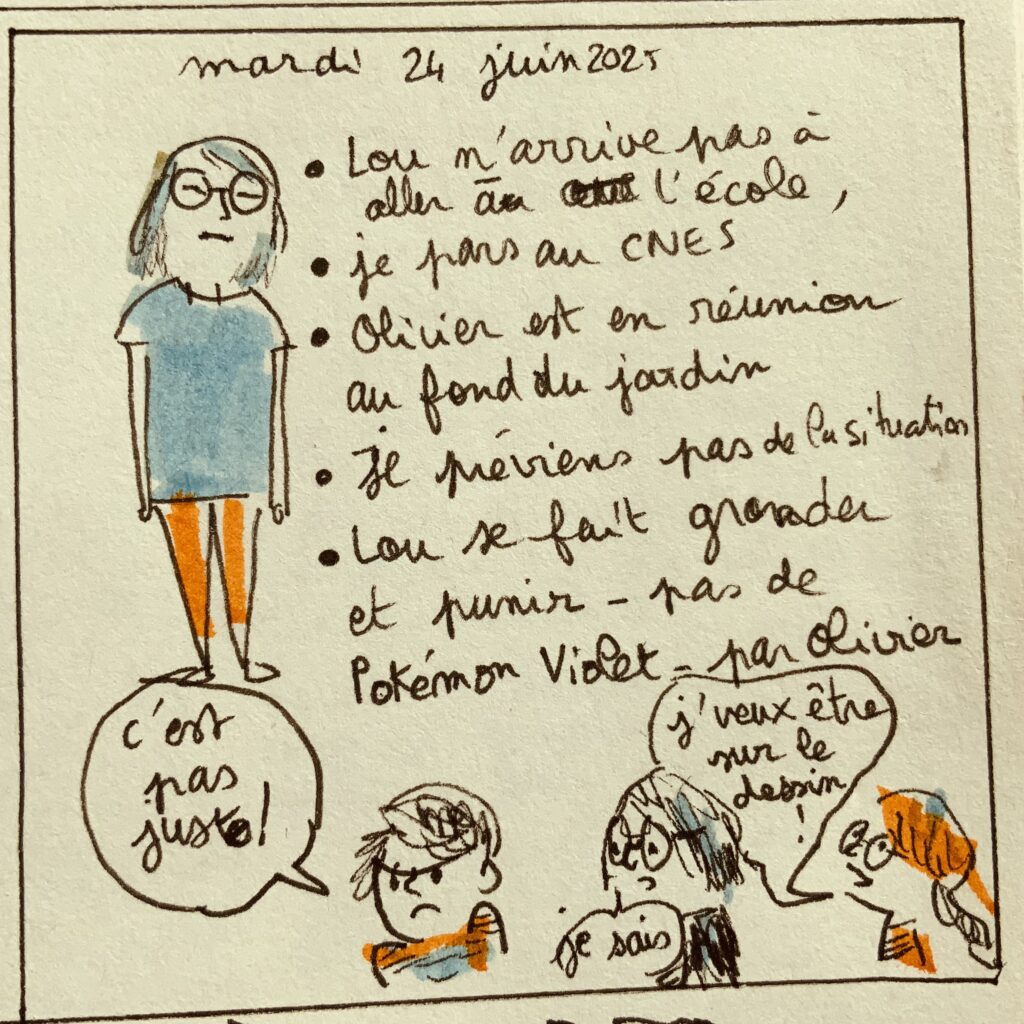 mardi 24 juin 2025
• Lou n'arrive pas à
aller à l'école,
• je pars au CNES
• Olivier est en réunion
au fond du jardin
• Je préviens pas de la situation
• Lou se fait gronder
et punir - pas de
Pokémon Violet - par Olivier
c'est
pas
juste!
j'veux être
sur le
dessin
!
je sais